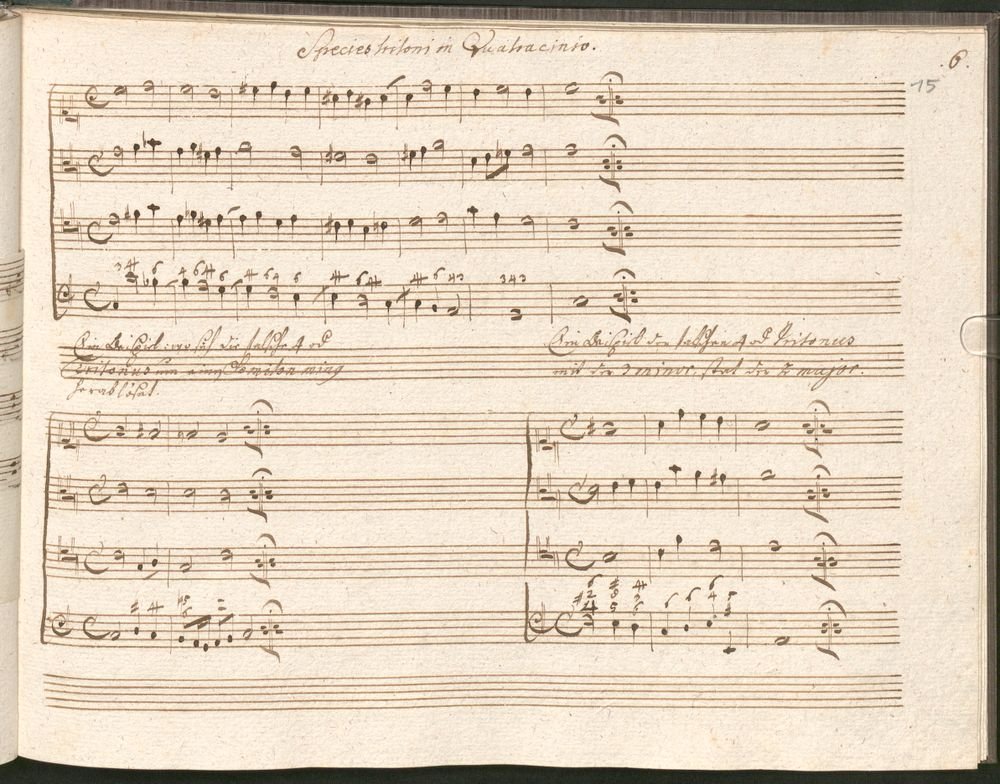 Species tritoni in Quatracinio.
6.
15
Ein Beispiel: wo sich die falsche 4 od
Tritonus um einen Semiton
herablöset.
Ein Beispiel der falschen 4 od Tritonus
mit der 3 minor, statt der 2 major.